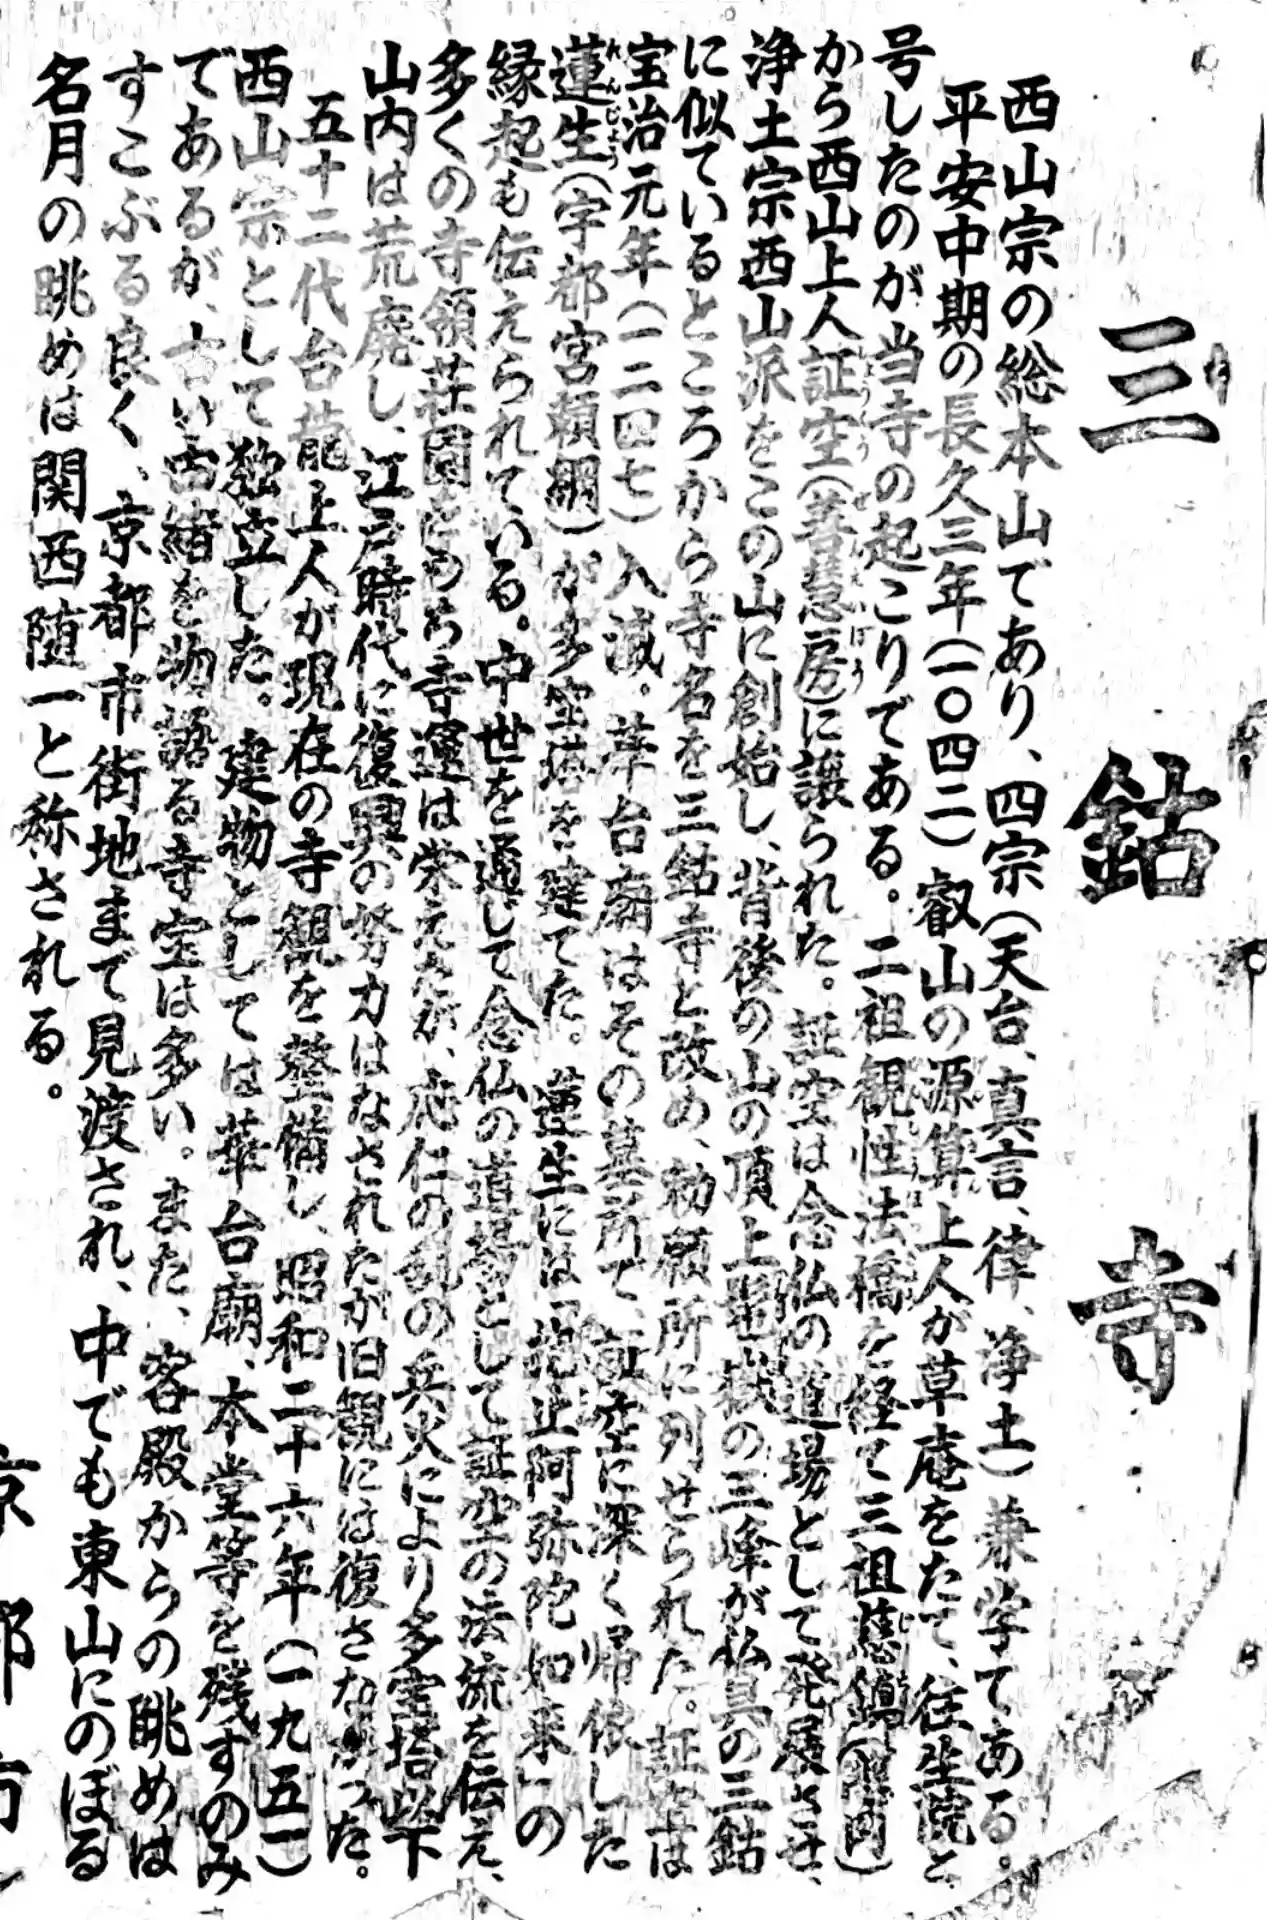 三鈷寺
西山宗の総本山であり、四宗(天台、真言、律、浄土)兼学てある。
平安中期の長久三年(一〇四二)叡山の源算上人が草庵をたて、往生院と
号したのが当寺の起こりである。二祖観性法橋を経て三祖慈鎮(慈円)
から西山上人証空(善慧房)に譲られた。証空は念仏の道場として発展させ、
浄土宗西山派をこの山に創始し、背後の山の頂上の三峰が仏具の三鈷
に似ているところから寺名を三鈷寺と改め、勅願所に列せられた。証空は
宝治元年(一二四七)入滅。華台廟はその墓所で、証空に深く帰依した
蓮生(宇都宮頼綱)が多宝塔を建てた。蓮生には「抱止阿弥陀如来」の
縁起も伝えられている。中世を通じて念仏の道場として証空の法流を伝え、
多くの寺領荘園をもち寺運は栄えたが、応仁の乱の兵火により多宝塔以下
山内は荒廃し、江戸時代に復興の努力はなされたが旧観には復さなかった。
五十二代台龍上人が現在の寺観を整備し、昭和二十六年(一九五一)
西山宗として独立した。建物としては華台廟、本堂等を残すのみ
であるが、古い由緒を物語る寺宝は多い。また、客殿からの眺めは
すこぶる良く、京都市街地まで見渡され、中でも東山にのぼる
名月の眺めは関西随一と称される。
京都市